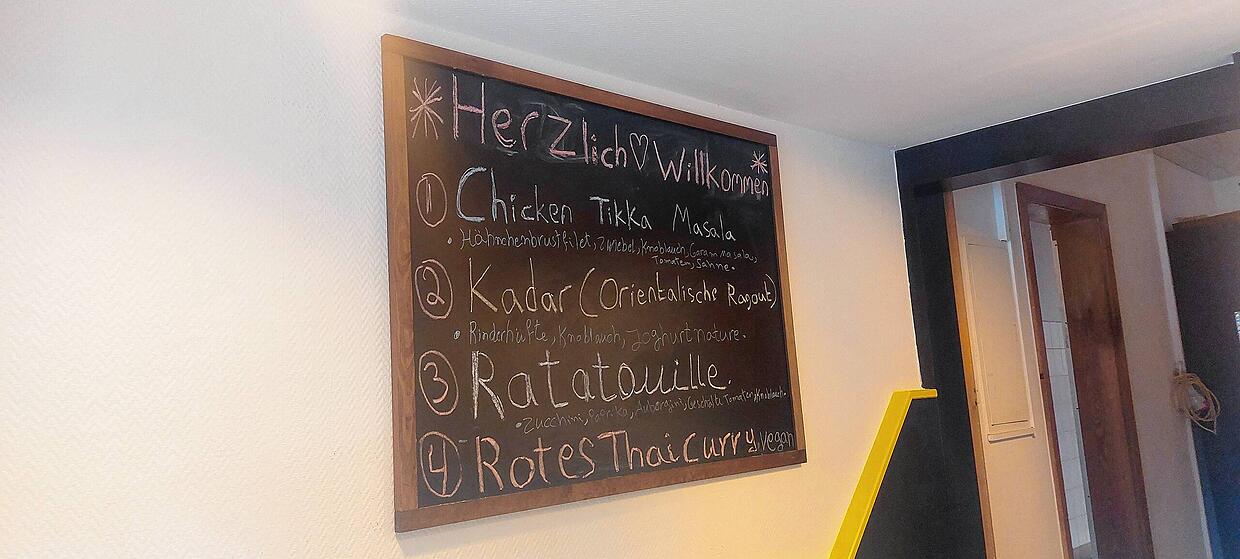 Herzlich ♡ Willkommen
① Chicken Tikka Masala
• Hähnchenbrustfilet, Zwiebel, Knoblauch, Garam Masala,
Tomaten, Sahne.
② Kadar (Orientalische Ragout)
• Rinderhüfte, Knoblauch, Joghurt nature.
③ Ratatouille.
• Zucchini, Paprika, Aubergini, Geschälte Tomaten, Knoblauch.
④ Rotes Thai Curry, vegan